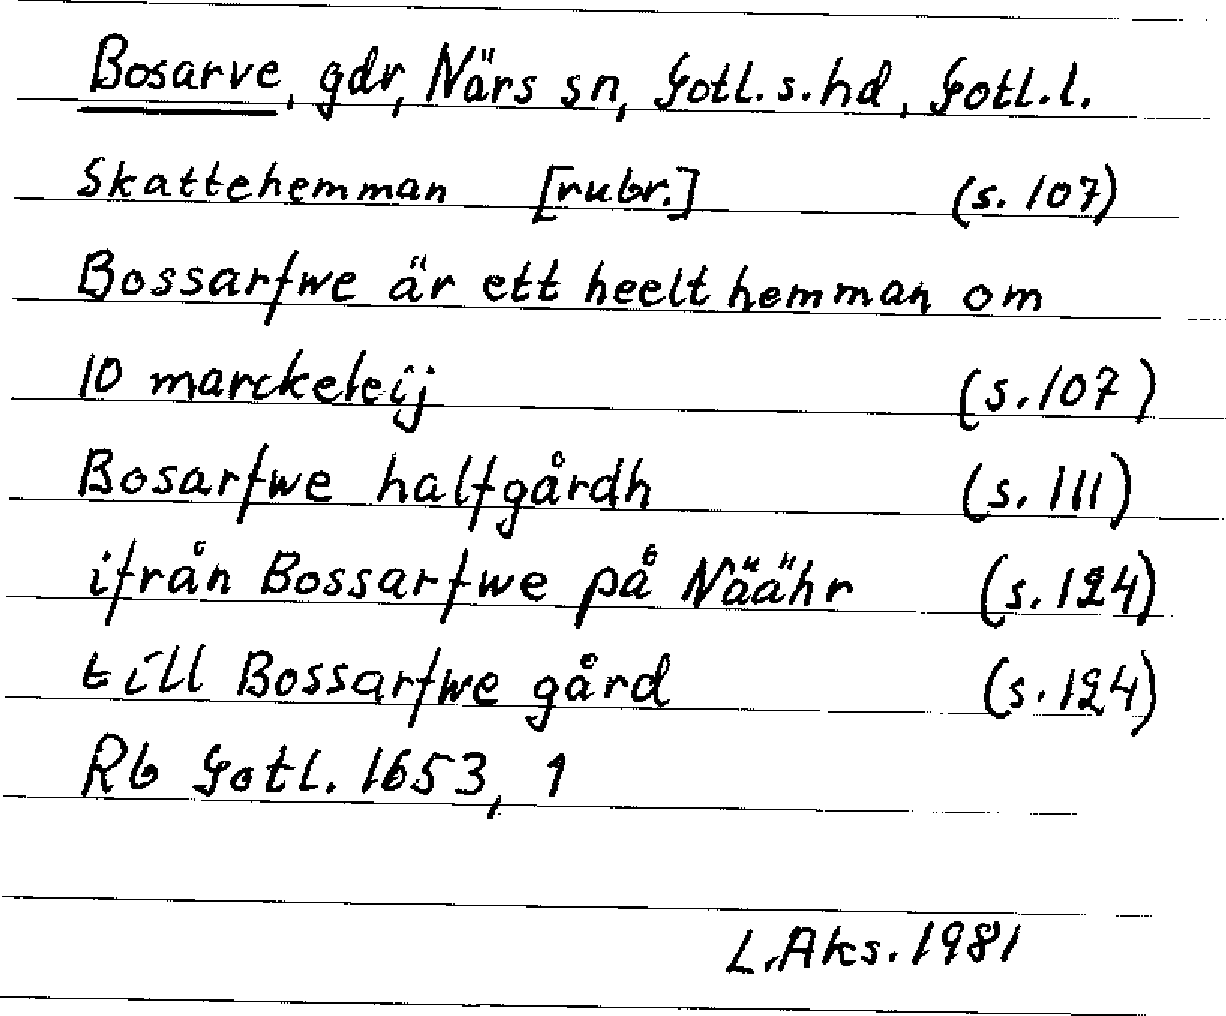 Bosarve, gdr, Närs sn, Gotl. s. hd, Gotl. l.
Skattehemman [rubr.] (s. 107)
Bossarfwe är ett heelt hemman om
10 marckeleij (s. 107)
Bosarfwe halfgårdh (s. 111)
ifrån Bossarfwe på Näähr (s. 124)
till Bossarfwe gård (s. 124)
Rb Gotl. 1653, 1
L. Aks. 1981